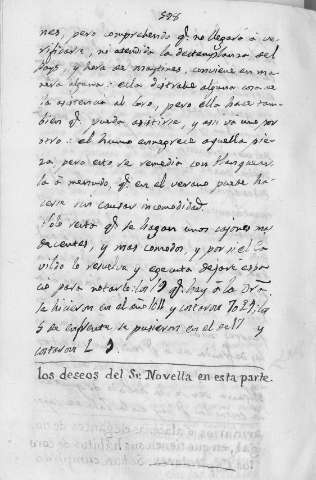 nes, pero comprehendo q.e no llegara a ve-
rificarse, no atendida la destemplanza del
Pays, y hora de maytines, conviene en ma-
nera alguna: ella distrahe alguna cosa de
la asistencia al Coro, pero ella hace tam-
bien q.e pueda asistirse, y asi va uno por
otro: el humo ennegrece aquella pie-
za pero esto se remedia con blanquear-
la à menudo, q.e en el verano puede ha-
cerse sin causar incomodidad.
Solo resta q.e se hagan unos cajones mas
decentes, y mas comodos, y por si el Ca-
vildo lo resuelve y egecuta dejaré espa-
cio para notarlo: los q.e hay à la Dra
se hicieron en el año y costaron
5 de enfrente se pusieron en el de 17 y
costaron
los deseos del Sr. Novella en esta parte.